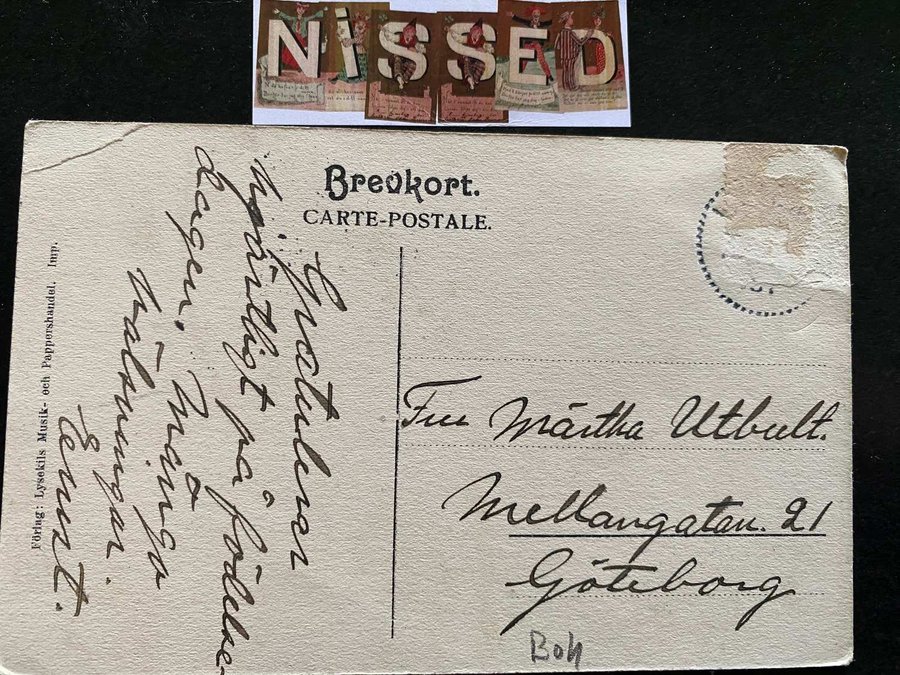 NISSED
Brevkort.
CARTE-POSTALE.
Gratulerar
hjärtligt på födelse-
dagen. Många
hälsningar.
Ernst.
Fru Märtha Utbult.
Mellangatan. 21
Göteborg
Boh
Förlag: Lysekils Musik- och Pappershandel. Imp.